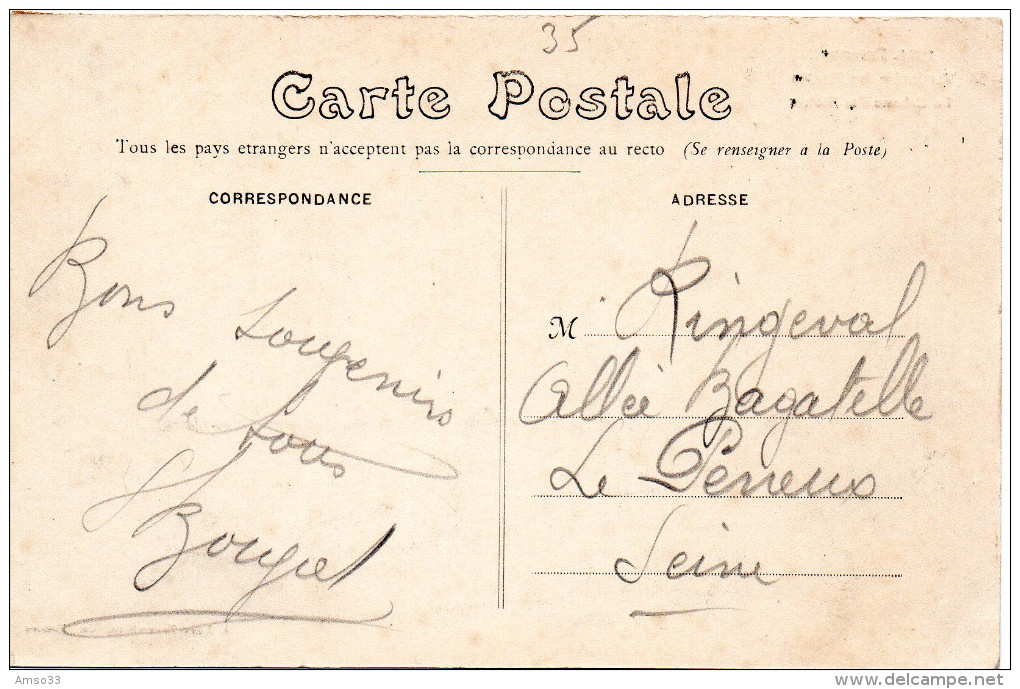 35
Carte Postale
Tous les pays etrangers n'acceptent pas la correspondance au recto (Se renseigner a la Poste)
CORRESPONDANCE
Bons
souvenirs
de tous
Bouget
ADRESSE
M Ringeval
Allée Bagatelle
Le Perreux
Seine
Amso33
delcampe.net